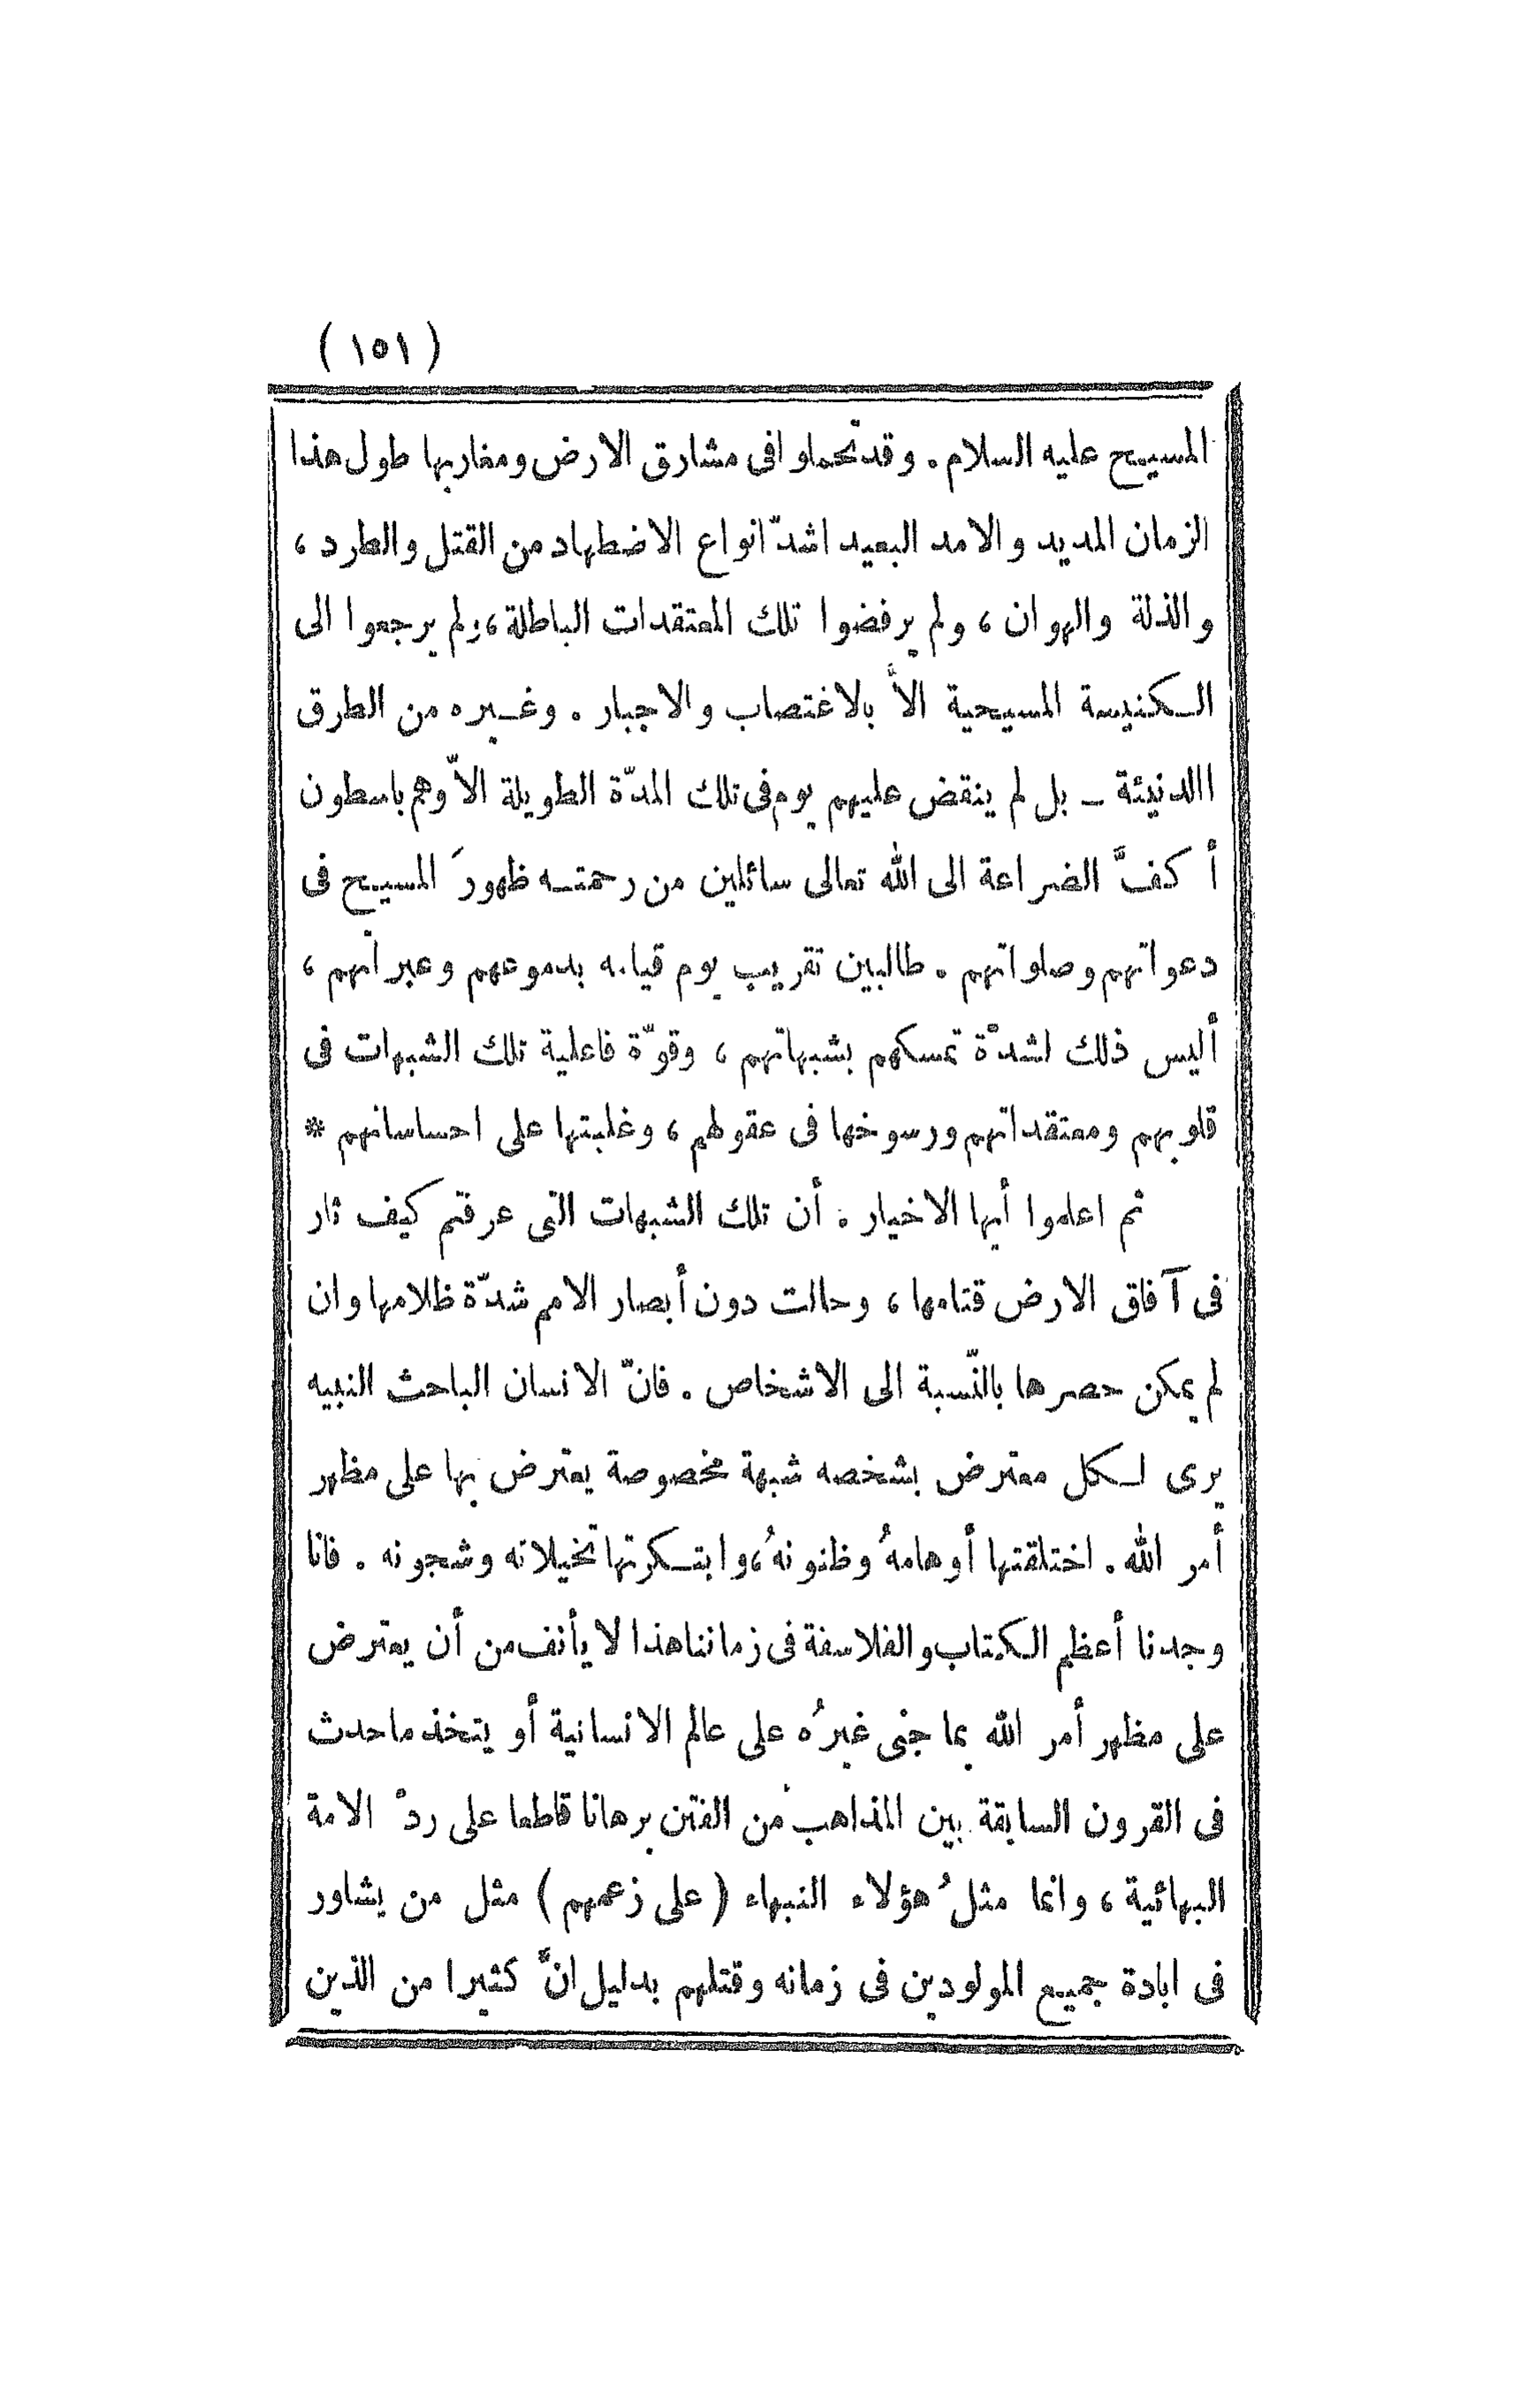 ( ١٥١ )
المسيح عليه السلام . وقد تحملوا فى مشارق الارض ومغاربها طول هذا
الزمان المديد والامد البعيد اشدّ انواع الاضطهاد من القتل والطرد ،
والذلة والهوان ، ولم يرفضوا تلك المعتقدات الباطلة ، ولم يرجعوا الى
الكنيسة المسيحية الاّ بالاغتصاب والاجبار . وغيره من الطرق
االدنيئة ـ بل لم ينقض عليهم يوم فى تلك المدّة الطويلة الاّ وهم باسطون
أكفَّ الضراعة الى الله تعالى سائلين من رحمته ظهورَ المسيح فى
دعواتهم وصلواتهم . طالبين تقريب يوم قيامه بدموعهم وعبراتهم ،
أليس ذلك لشدّة تمسكهم بشبهاتهم ، وقوّة فاعلية تلك الشبهات فى
قلوبهم ومعتقداتهم ورسوخها فى عقولهم ، وغلبتها على احساساتهم *
ثم اعلموا أيها الاخيار : أن تلك الشبهات التى عرفتم كيف ثار
فى آفاق الارض قتامها ، وحالت دون أبصار الامم شدّة ظلامها وان
لم يمكن حصرها بالنّسبة الى الاشخاص . فانّ الانسان الباحث النبيه
يرى لكل معترض بشخصه شبهة مخصوصة يعترض بها على مظهر
أمر الله . اختلقتها أوهامهُ وظنونهُ ، وابتكرتها تخيلاته وشجونه . فانا
وجدنا أعظم الكتاب والفلاسفة فى زماننا هذا لا يأنف من أن يعترض
على مظهر أمر الله بما جنى غيرُه على عالم الانسانية أو يتخذ ما حدث
فى القرون السابقة بين المذاهب من الفتن برهانا قاطعا على ردّ الامة
البهائية ، وانما مثلُ هؤلاء النبهاء ( على زعمهم ) مثل من يشاور
فى ابادة جميع المولودين فى زمانه وقتلهم بدليل انَّ كثيرا من الذين